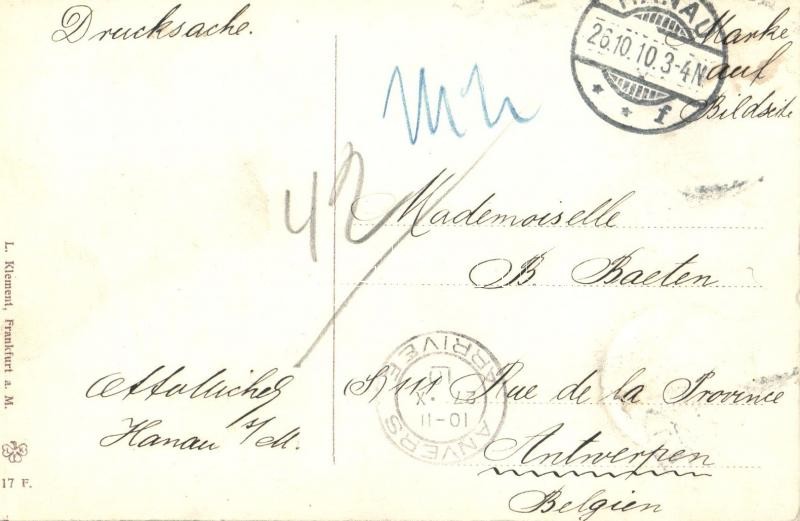 Drucksache.
HANAU
26.10.10.3-4N
* * f
Marke
auf
Bildseite
42
Mademoiselle
B. Baeten
111 Rue de la Province
Antwerpen
Belgien
Hanau a/M.
ANVERS
ARRIVEE
10-11
X
L. Klement, Frankfurt a. M.
17 F.